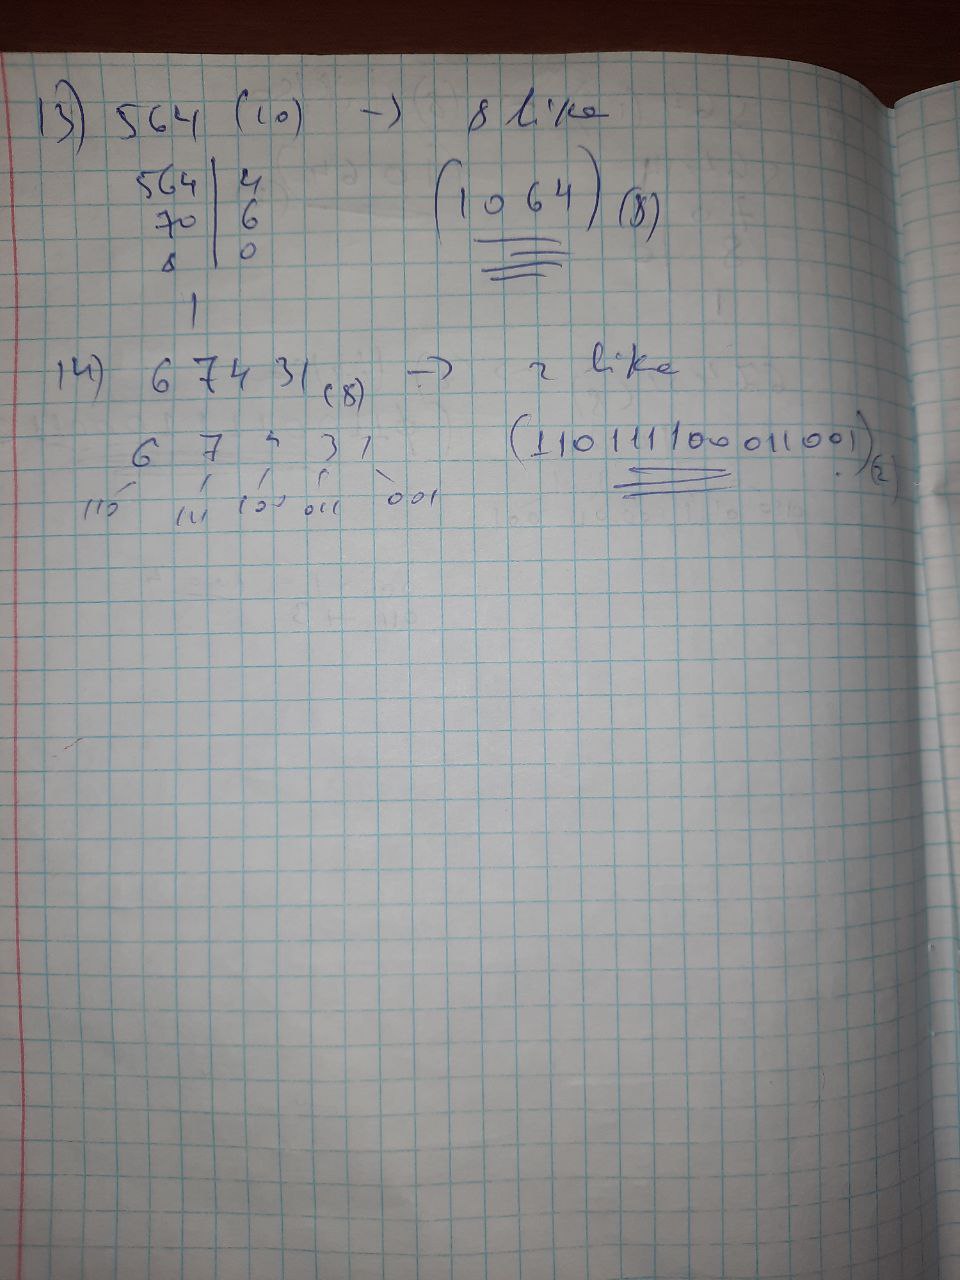 13) 564 (10) → 8 lika
564 | 4
70 | 6
8 | 0
1
(1064) (8)
14) 67431 (8) → 2 lika
6 7 4 3 1
110 111 100 011 001
(110111100011001)(2)